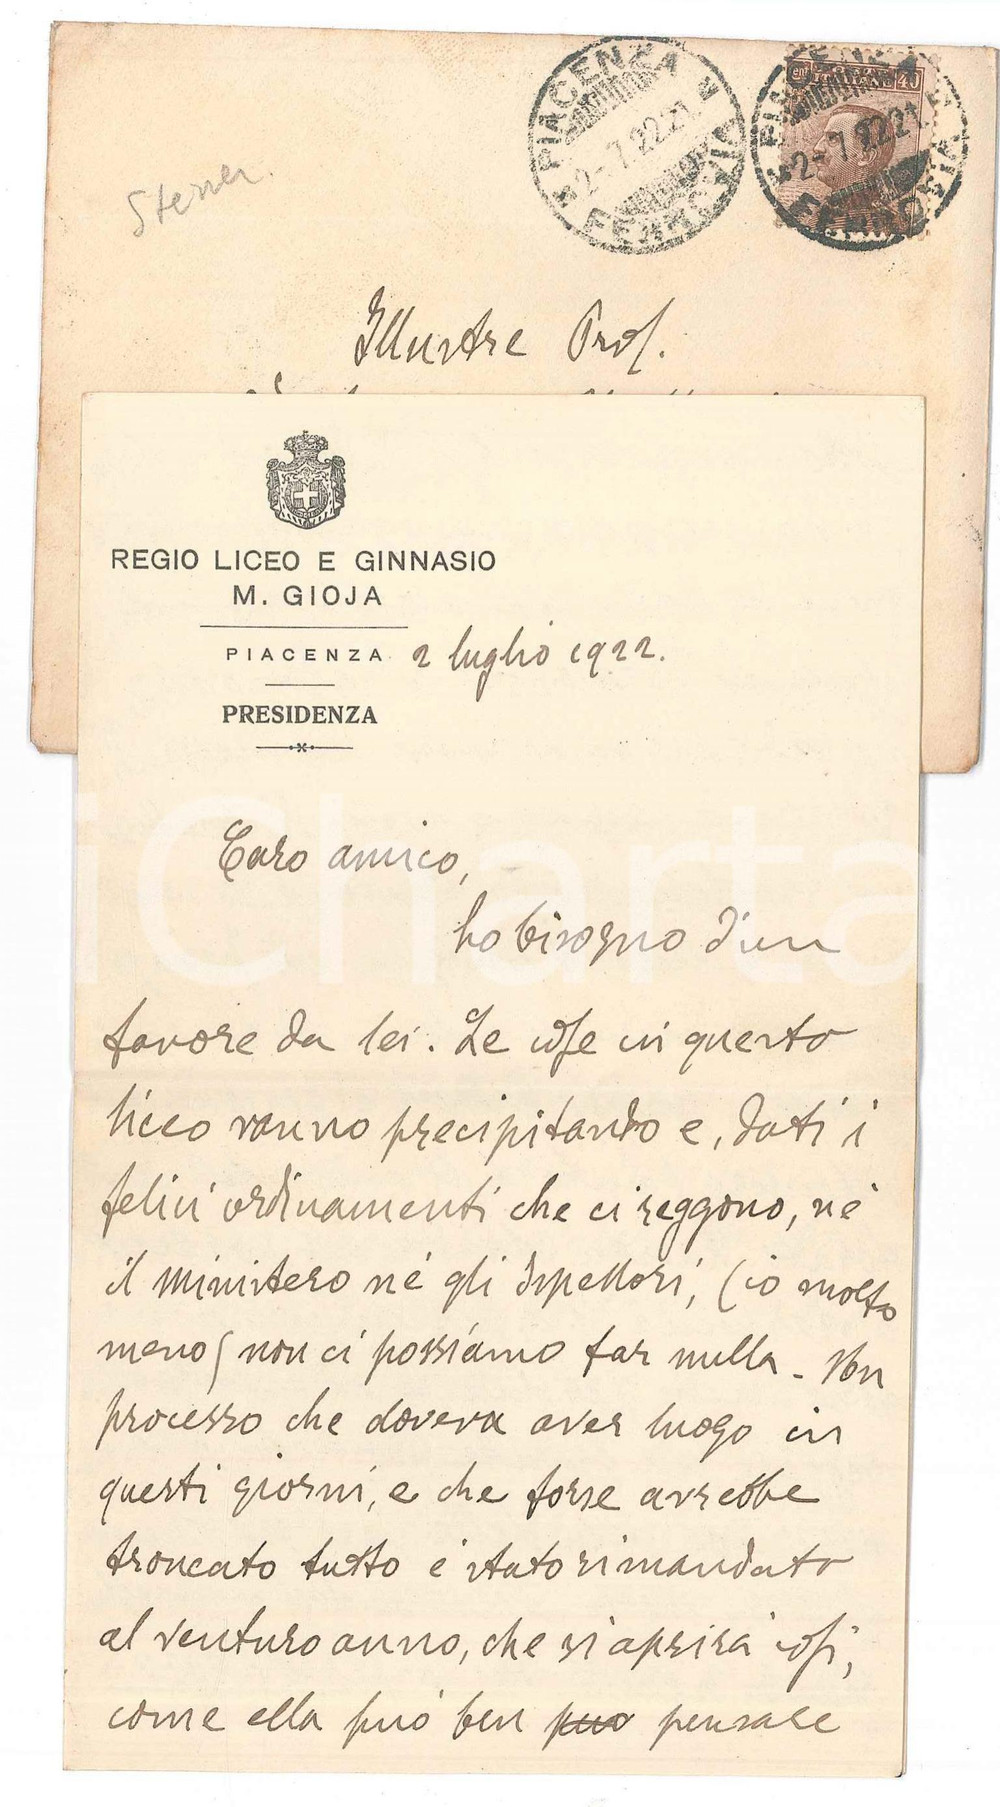 PIACENZA
2-7.22.21
FERROVIA
PIACENZA
2-7.22.21
FERROVIA
40
Sterner.
Illustre Prof.
REGIO LICEO E GINNASIO
M. GIOJA
PIACENZA 2 luglio 1922.
PRESIDENZA
iCharta
Caro amico,
ho bisogno d'un
favore da lei. Le cose in questo
liceo vanno precipitando e, dati i
felici ordinamenti che ci reggono, nè
il ministero nè gli Ispettori, (io molto
meno) non ci possiamo far nulla - Un
processo che doveva aver luogo in
questi giorni, e che forse avrebbe
troncato tutto è stato rimandato
al venturo anno, che si aprirà così,
come ella può ben può pensare